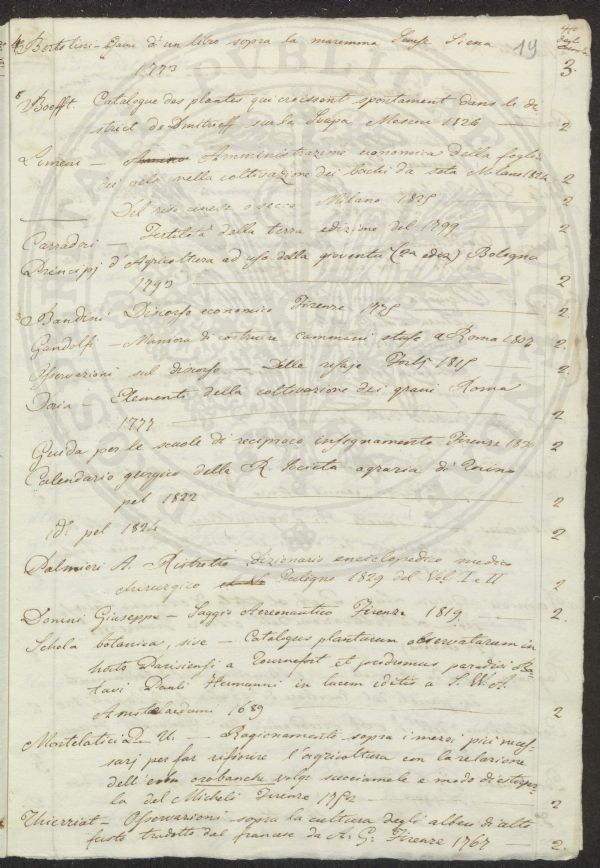 19
Bertolini - Esame d'un libro sopra la maremma Sanese Siena
1773 3.
Boefft. Catalogue des plantes qui croissent spontament dans le di-
strict de Dmitrieff sur la Svapa Moscou 1826 2
Limeni - Amministrazione economica della foglia
dei gelsi nella coltivazione dei bachi da seta Milano 1824 2
Del riso cinese o secco Milano 1825 2
Carradori - Fertilità della terra edizione del 1799 2
Principj d'Agricoltura ad uso della gioventù (2a edez) Bologna
1793 2
Bandini Discorso economico Firenze 1775 2
Gandolfi - Maniera di costruire cammini stufe Roma 1807 2.
Osservazioni sul discorso - Delle risaje Forlì 1815 2
Doria Elementi della coltivazione dei grani Roma
1777 2
Guida per le scuole di reciproco insegnamento Firenze 2
Calendario georgico della R. Società agraria di Torino
pel 1822 2
Id. pel 1824 2
Palmieri A. Ristretto Dizionario enciclopedico medico
chirurgico Fuligno 1829 del Vol. I e II 2
Donini Giuseppe - Saggio Aereonautico Firenze 1819 2.
Schola botanica, sive - Catalogus plantarum observatarum in
horto Parisiensi a Tournefort et prodromus paradisi Ba-
tavi Pauli Hermanni in lucem editus a S. W. A.
Amstelaedami 1689 2
Montelatici D. U. - Ragionamento sopra i mezzi più neces-
sarj per far rifiorire l'agricoltura con la relazione
dell'erba orobanche volg. succiamele e modo di estirpar-
la del Micheli Firenze 1752 2
Thierriat - Osservazioni sopra la cultura degli alberi di alto
fusto tradotto dal francese da A. G. Firenze 1767 2.